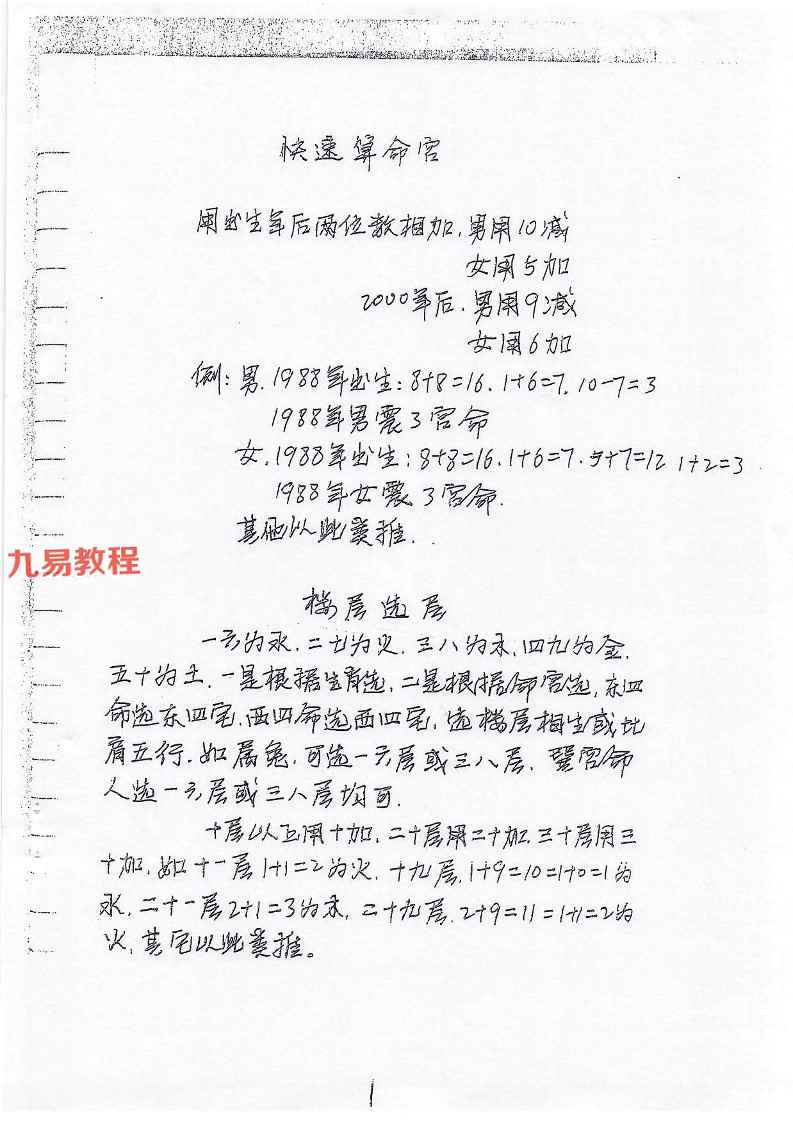 快速算命宫
用出生年后两位数相加.男用10减
女用5加
2000年后.男用9减
女用6加
例:男.1988年出生:8+8=16.1+6=7.10-7=3
1988年男震3宫命
女.1988年出生:8+8=16.1+6=7.5+7=12 1+2=3.
1988年女震3宫命.
其他以此类推..
九易教程
楼层选层
一六为水.二七为火.三八为木.四九为金.
五十为土.一是根据生肖选,二是根据命宫选,东四
命选东四宅.西四命选西四宅,选楼层相生或比
肩五行.如属兔,可选一六层或三八层.震宫命
人选一六层或三八层均可.
十层以上用十加,二十层用二十加.三十层用三
十加,如十一层1+1=2为火.十九层.1+9=10=1+0=1为
水.二十一层2+1=3为木,二十九层.2+9=11=1+1=2为
火,其它以此类推。
1